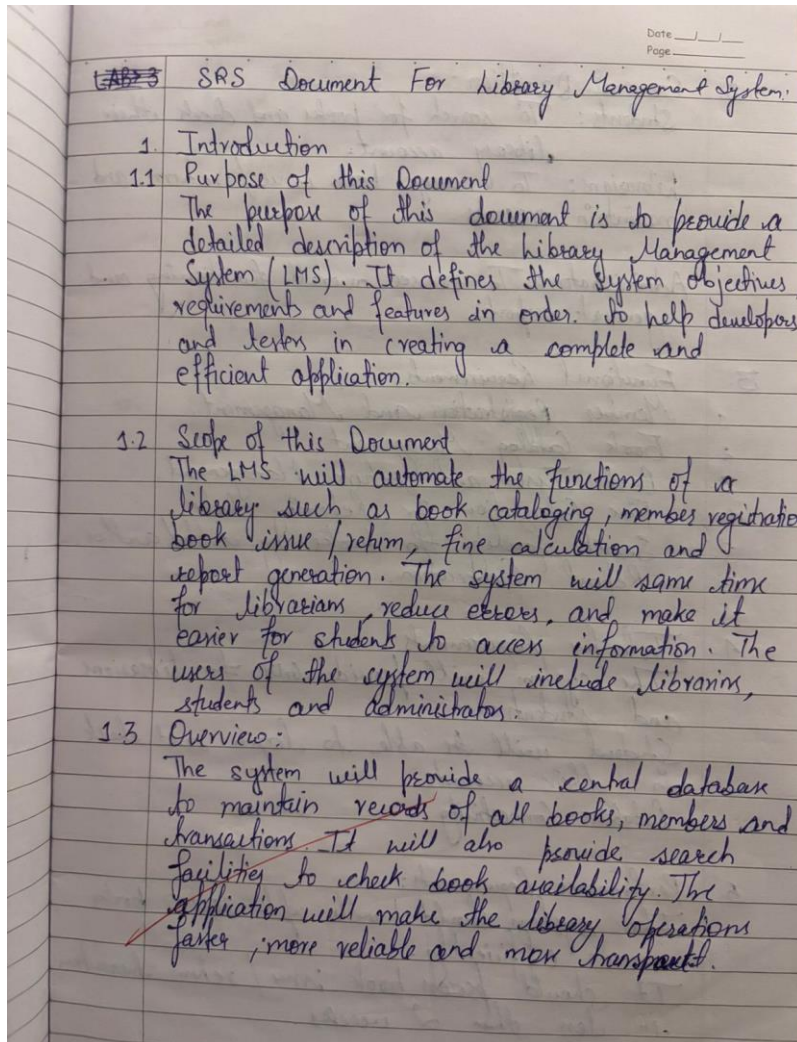 Date __/__/__
Page ______
LAB-3 SRS Document For Library Management System.
1. Introduction
1.1 Purpose of this Document
The purpose of this document is to provide a
detailed description of the Library Management
System (LMS). It defines the system objectives
requirements and features in order. to help developers
and testers in creating a complete and
efficient application.
1.2 Scope of this Document
The LMS will automate the functions of a
library such as book cataloging, member registratio
book issue / return, fine calculation and
report generation. The system will same time
for librarians, reduce errors, and make it
easier for students to access information. The
users of the system will include librarins,
students and administrators.
1.3 Overview:
The system will provide a central database
to maintain records of all books, members and
transactions. It will also provide search
facilities to check book availability. The
application will make the library operations
faster, more reliable and more transparent.